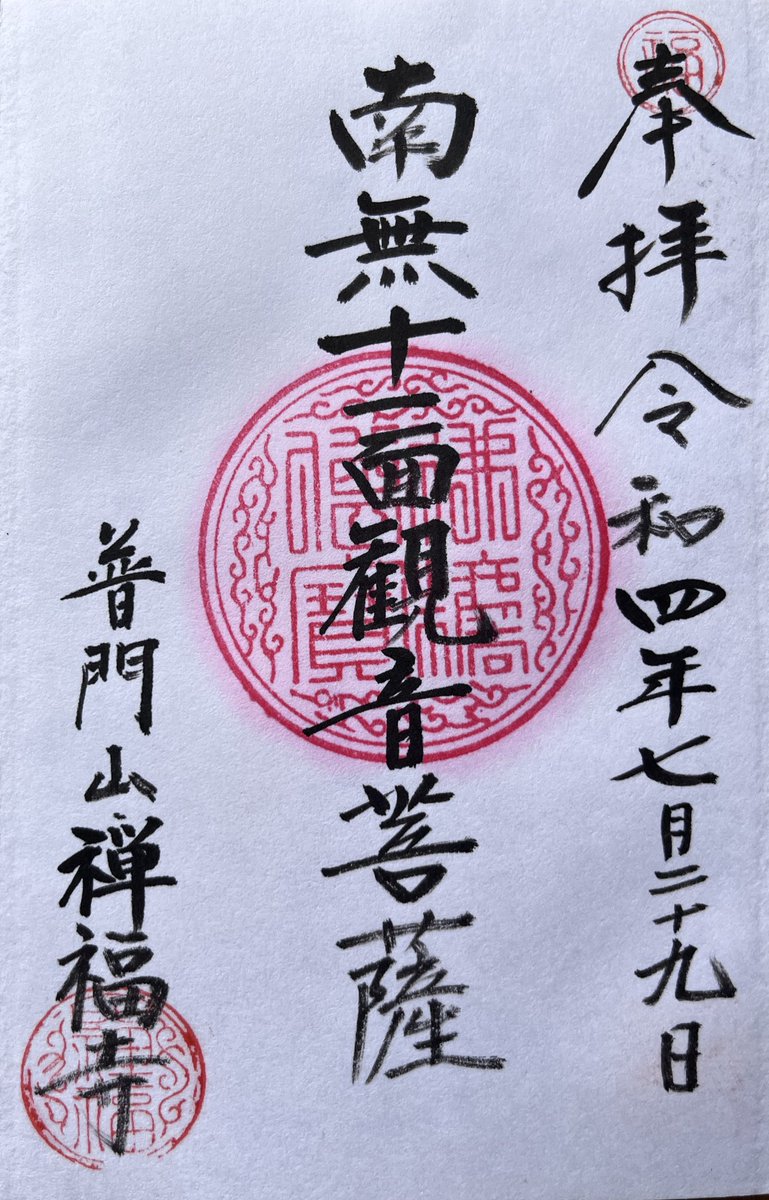 奉拝 令和四年七月二十九日
南無十一面観音菩薩
普門山禅福寺
佛法僧寶